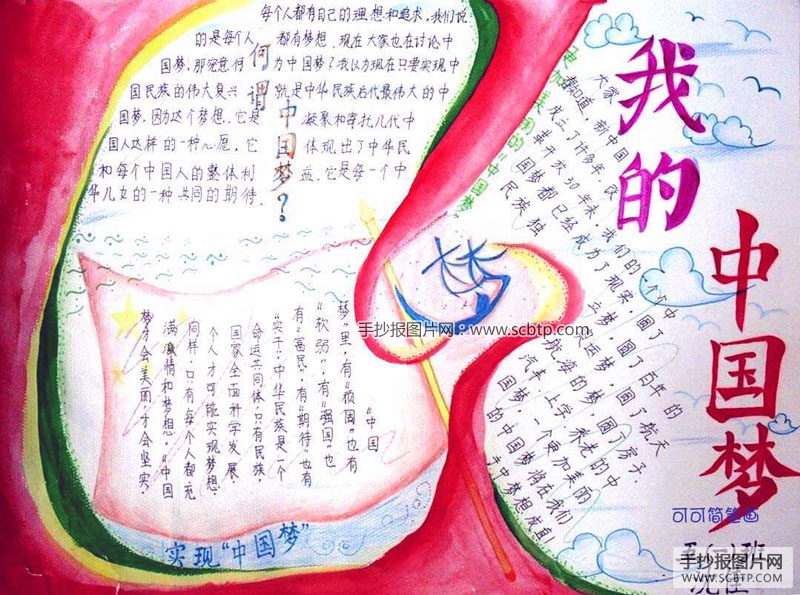 我的
中国梦
每个人都有自己的理想和追求，我们说
的是每个人都有梦想．现在大家也在讨论中
国梦，那究竟何为中国梦？我认为现在只要实现中
国民族的伟大复兴就是中华民族后代最伟大的中
国梦，因为这个梦想，它是凝聚和寄托几代中
国人这样的一种心愿，它体现出了中华民
和每个中国人的整体利益，它是每一个中
华儿女的一种共同的期待．
何谓中国梦？
更加美丽的"中国梦"
大家
都知道，新中国
成立了许多年，改
革开放30年来，我们的一个个中
国梦都已经成为了现实！圆了
民族独立梦，圆了百年的
奥运梦，圆了航天
航海的梦，圆了房子、
汽车、上学、养老的中
国梦，一个更加美丽
的中国梦将在我们
手中梦想成真！
梦
手抄报图片网：www.scbtp.com
"中国
梦"里，有也有
"软弱"，有"强国"也
有"富民"，有"期待"也有
"实干"。中华民族是一个
命运共同体，只有民族、
国家全面科学发展，
个人才可能实现梦想．
同样，只有每个人都充
满激情和梦想，"中国
梦才会美丽，才会坚实．
实现"中国梦"
可可简笔画
班
手抄报图片网
WWW.SCBTP.COM